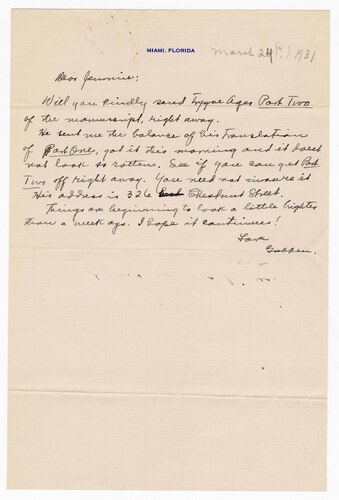 MIAMI, FLORIDA
March 24(?) 1931
Dear Jennie:
Will you kindly send Trygve Ager Part Two
of the manuscript, right away.
He sent me the balance of his translation
of Part One, got it this morning and it does't
not look so rotten. See if you can get Part
Two off right away. You need not insure it
His address is 326 Chestnut Street.
Things are beginning to look a little brighter
than a week ago. I hope it continues!